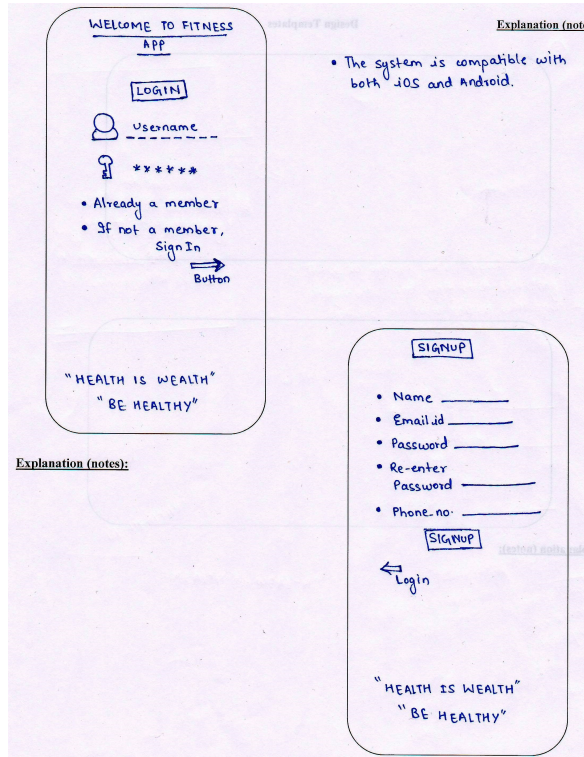 WELCOME TO FITNESS
APP
LOGIN
Username
******
• Already a member
• If not a member,
Sign In
Button
"HEALTH IS WEALTH"
"BE HEALTHY"
Explanation (note
• The system is compatible with
both iOS and Android.
Explanation (notes):
SIGNUP
• Name
• Email.id
• Password
• Re-enter
Password
• Phone-no.
SIGNUP
Login
"HEALTH IS WEALTH"
"BE HEALTHY"